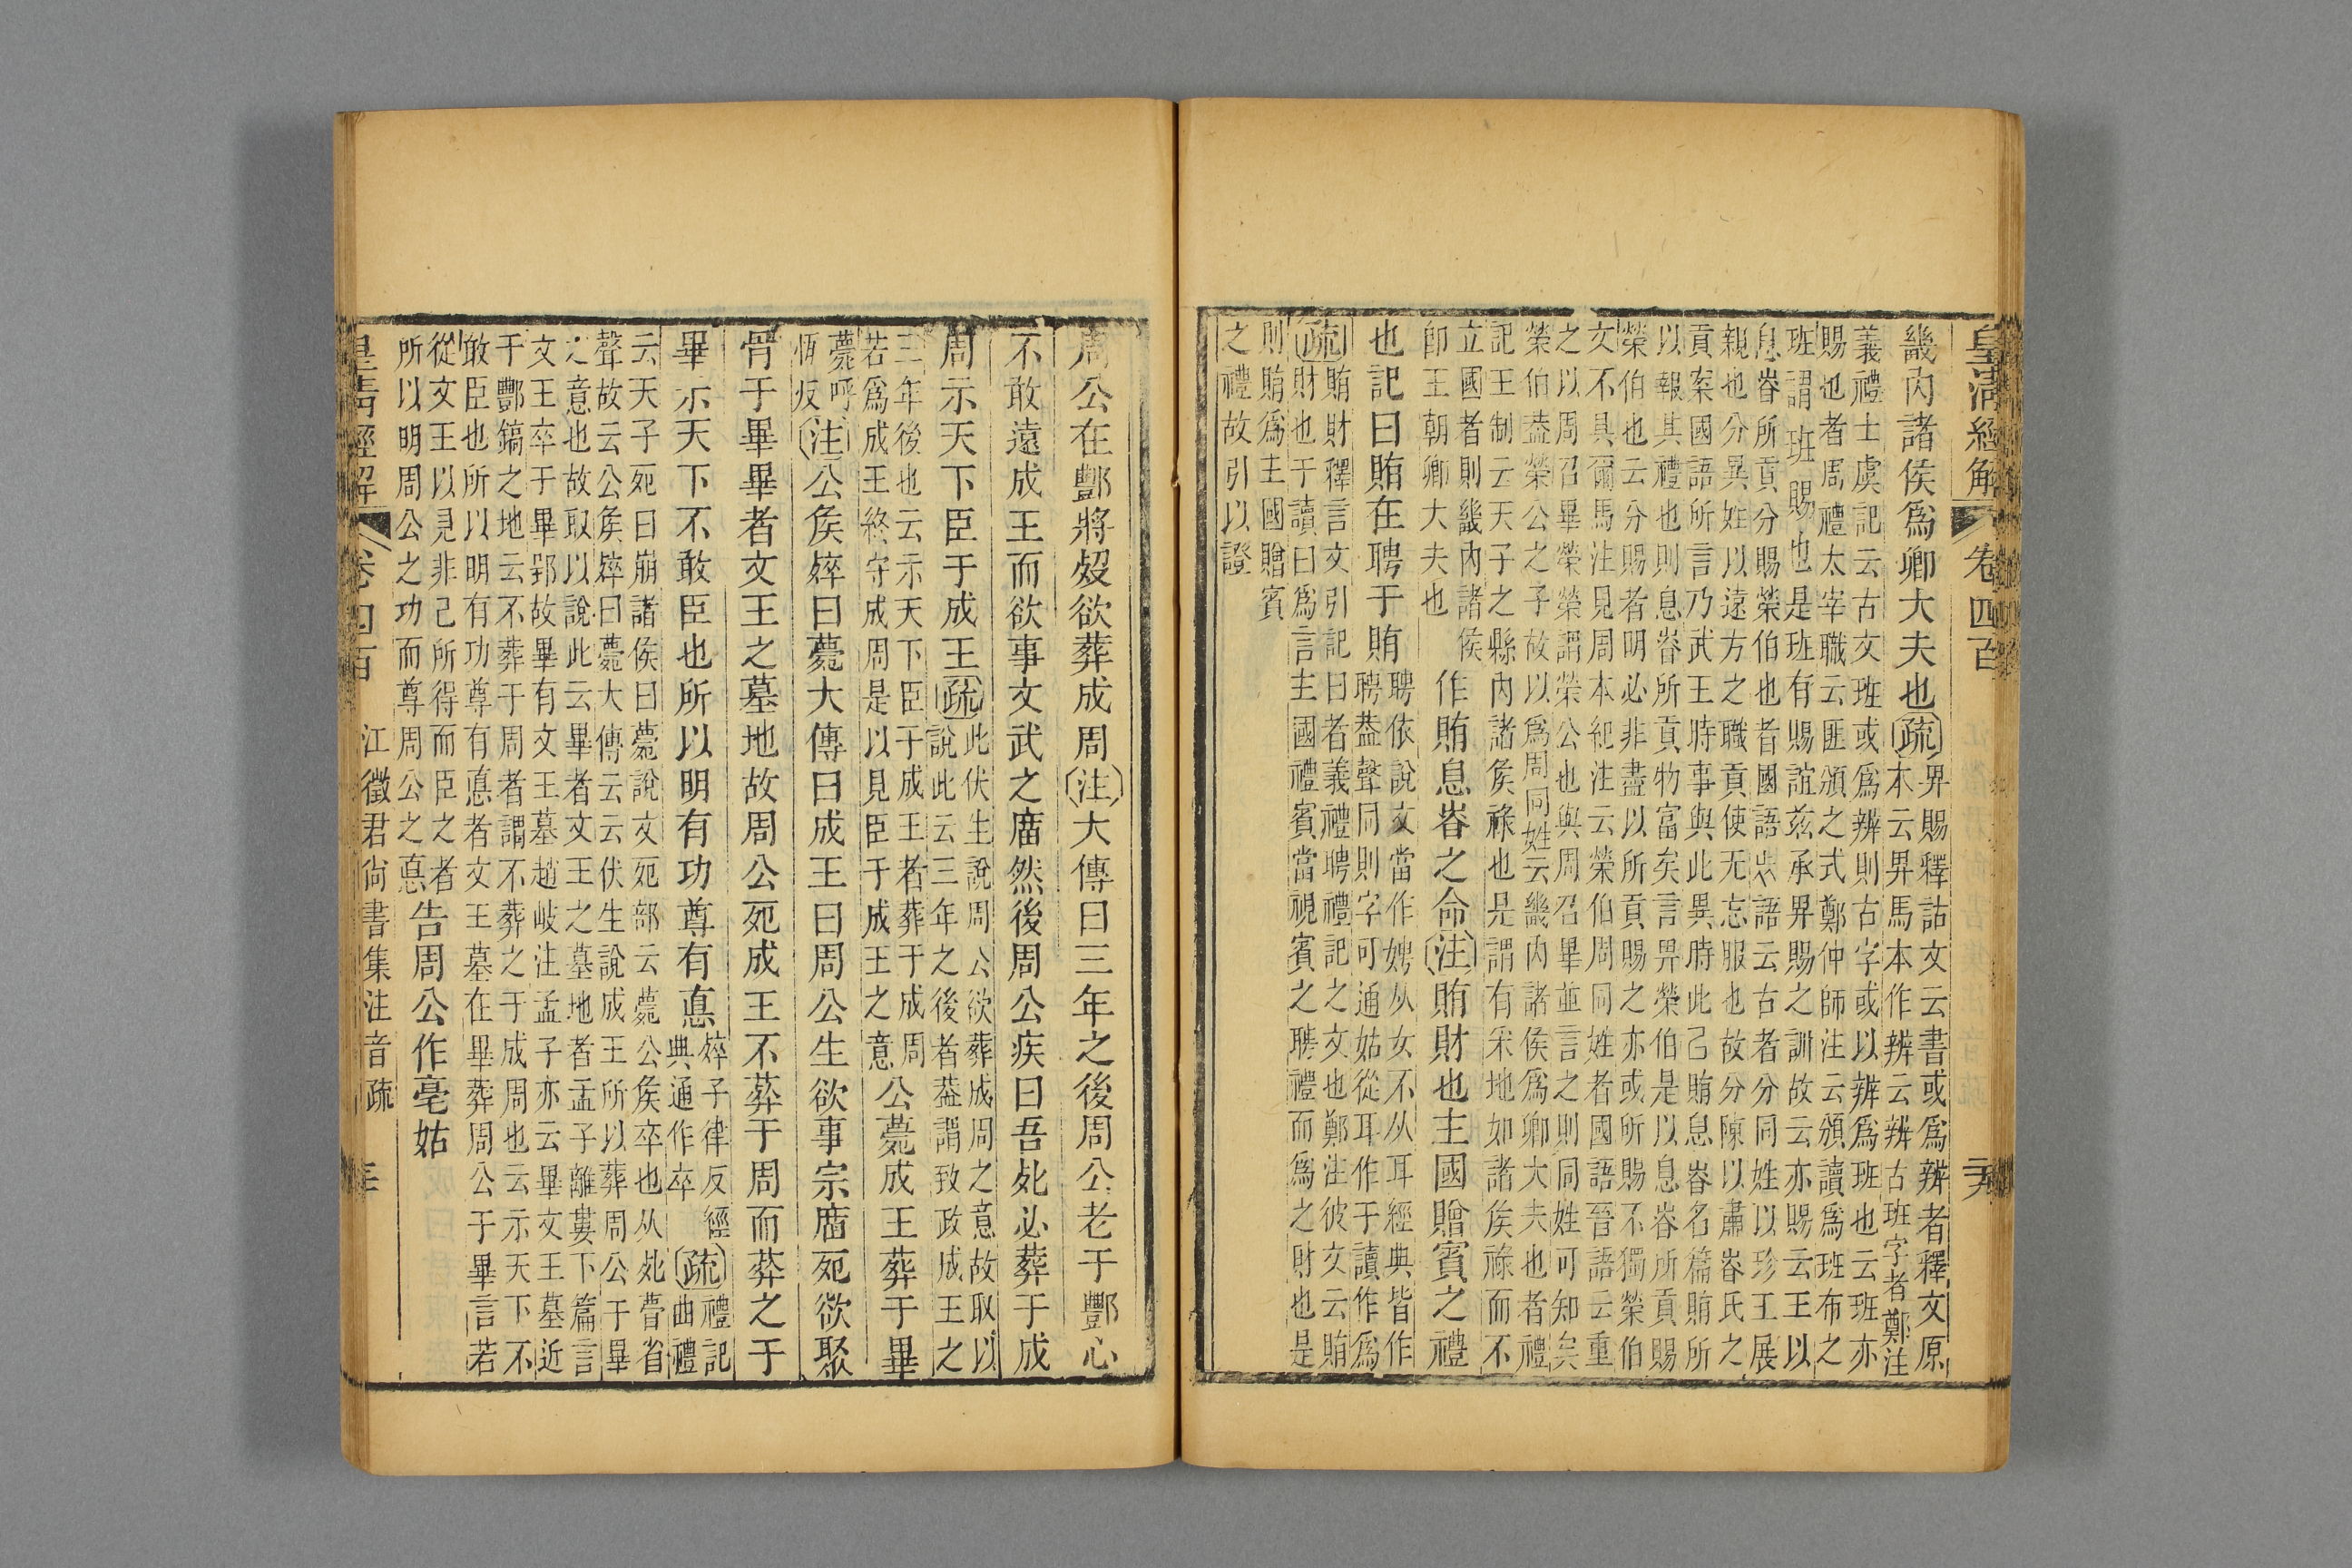 皇清經解 卷四百 二十九
畿內諸侯爲卿大夫也疏畀賜釋詁文云書或爲辨者釋文原
本云畀馬本作辨云辨古班字者鄭注
義禮士虞記云古文班或爲辨則古字或以辨爲班也云班亦
賜也者周禮太宰職云匪頒之式鄭仲師注云頒讀爲班布之
班謂班賜也是班有賜誼茲承畀賜之訓故云亦賜云王以
息眘所貢分賜榮伯也者國語魯語云古者分同姓以珍王展
親也分異姓以遠方之職貢使无忘服也故分陳以肅眘氏之
貢案國語所言乃武王時事與此異時此己賄息眘名篇賄所
以報其禮也則息眘所貢物富矣言畀榮伯是以息眘所貢賜
榮伯也云分賜者明必非盡以所貢賜之亦或所賜不獨榮伯
文不具爾馬注見周本紀注云榮伯周同姓者國語晉語云重
之以周召畢榮榮謂榮公也與周召畢並言之則同姓可知矣
榮伯葢榮公之子故以爲周同姓云畿內諸侯爲卿大夫也者禮
記王制云天子之縣內諸矦祿也是謂有采地如諸矦祿而不
立國者則畿內諸侯
卽王朝卿大夫也
作賄息眘之命注賄財也主國贈賓之禮
也記曰賄在聘于賄聘依說文當作娉从女不从耳經典皆作
聘葢聲同則字可通姑從耳作于讀作爲
疏賄財釋言文引記曰者義禮聘禮記之文也鄭注彼文云賄
財也于讀曰爲言主國禮賓當視賓之聘禮而爲之財也是
則賄爲主國贈賓
之禮故引以證
周公在酆將歿欲葬成周注大傳曰三年之後周公老于酆心
不敢遠成王而欲事文武之廟然後周公疾曰吾死必葬于成
周示天下臣于成王疏此伏生說周公欲葬成周之意故取以
說此云三年之後者葢謂致政成王之
三年後也云示天下臣于成王者葬于成周
若爲成王終守成周是以見臣于成王之意
公薨成王葬于畢
薨呼
恆反
注公矦䘚曰薨大傳曰成王曰周公生欲事宗廟死欲聚
骨于畢畢者文王之墓地故周公死成王不葬于周而葬之于
畢示天下不敢臣也所以明有功尊有悳䘚子律反經
典通作卒
疏禮記
曲禮
云天子死曰崩諸侯曰薨說文死部云薨公矦卒也从死瞢省
聲故云公矦䘚曰薨大傳云云伏生說成王所以葬周公于畢
之意也故取以說此云畢者文王之墓地者孟子離婁下篇言
文王卒于畢郢故畢有文王墓趙岐注孟子亦云畢文王墓近
于酆鎬之地云不葬于周者謂不葬之于成周也云示天下不
敢臣也所以明有功尊有悳者文王墓在畢葬周公于畢言若
從文王以見非己所得而臣之者
所以明周公之功而尊周公之悳
告周公作亳姑
皇清經解 卷四百 江徵君尚書集注音疏 三十